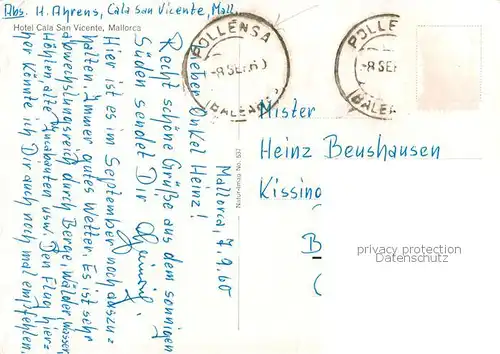 Abs. H. Ahrens, Cala San Vicente, Mall.
Hotel Cala San Vicente, Mallorca
Mallorca, 7.9.60
Lieber Onkel Heinz!
Recht schöne Grüße aus dem sonnigen
Süden sendet Dir
Hier ist es im September noch auszu-
halten. Immer gutes Wetter. Es ist sehr
abwechslungsreich durch Berge, Wälder, Wasser,
Höhlen, alte usw. Den Flug hier-
her könnte ich Dir auch noch mal empfehlen.
Natur-Imp No. 537
POLLENSA
-8 SEP. 60
(BALEARES)
POLLE
-8 SEP
(BALEA
Mister
Heinz Beushausen
Kissing
B
(
privacy protection
Datenschutz